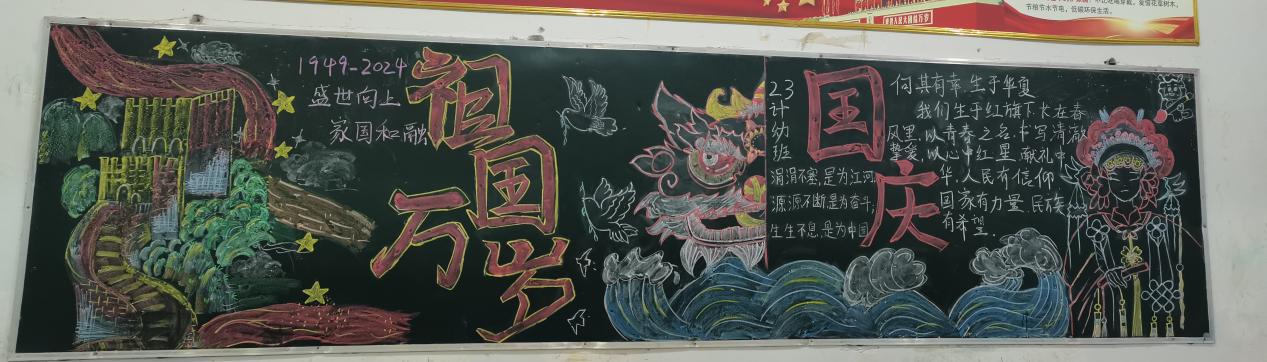 节粮节水节电，低碳环保生活。
1949-2024
盛世向上
家国和融
祖国
万岁
23
计
幼
班
涓涓不塞,是为江河,
源源不断,是为奋斗;
生生不息,是为中国
国庆
何其有幸,生于华夏
我们生于红旗下,长在春
风里,以青春之名,书写清澈
挚爱,以心中红星,献礼中
华,人民有信仰
国家有力量,民族
有希望.